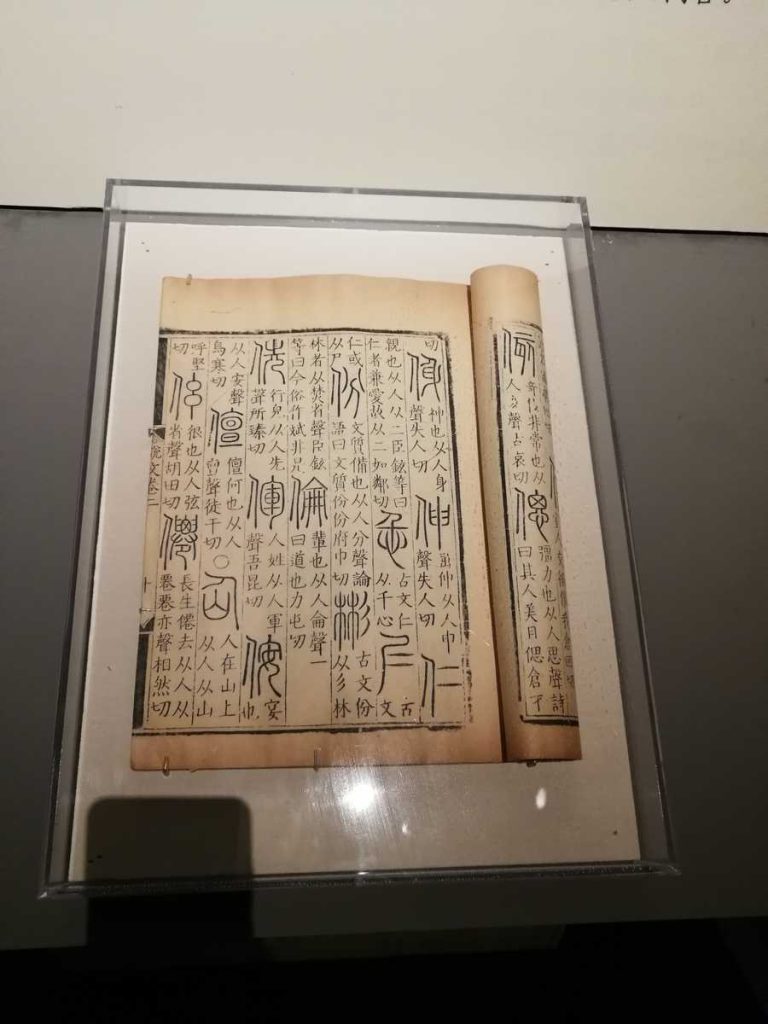 侅奇侅非常也从
人亥聲古哀切
偲彊力也从人思聲詩
曰其人美且偲倉才
曰
㑗神也从人身
聲失人切
伸屈伸从人申
聲失人切
仁
親也从人从二臣鉉等曰
仁者兼愛故从二如鄰切
忎古文仁
从千心
𡰥古
文
仁或
从尸
份文質備也从人分聲論
語曰文質份份府巾切
彬古文份
从彡林
林者从焚省聲臣鉉
等曰今俗作斌非是
倫輩也从人侖聲一
曰道也力屯切
侁行皃从人先
聲所臻切
㑮人姓从人軍
聲吾昆切
侒宴
也
从人安聲
烏寒切
儃儃何也从人
亶聲徒干切
○
仚人在山上
从人从山
呼堅
切
伭很也从人弦
省聲胡田切
僊長生僊去从人从
䙴䙴亦聲相然切
十